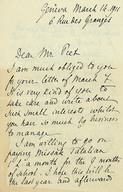 Geneva March 14, 1911
6 Rue des Granges
Dear Mr Peet
I am much obliged to you
for your letter of March 7.
It is very kind of you to
take care and write about
such small interests whilst
you have so much big business
to manage.
I am willing to go on
paying Missak
for a month for the 9 months
of school. I hope this will be
the last year and afterward